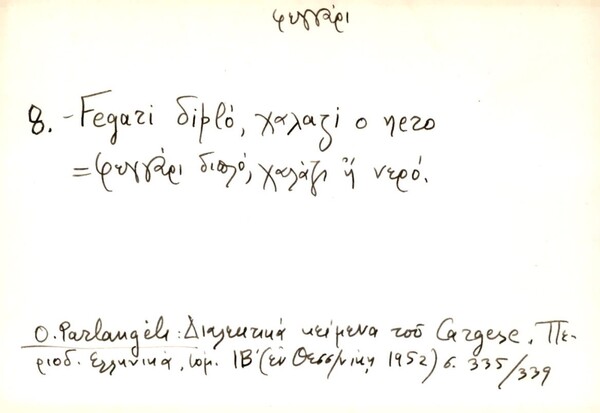 φεγγάρι
8. - Fegari diplό, χαλαzi o nero
= φεγγάρι διπλό, χαλάζι ἤ νερό.
O. Parlangèli: Διαλεκτικά κείμενα τοῦ Cargese, Πε-
ριοδ. Ελληνικά, τομ. ΙΒ' (εν Θεσσ/νίκη 1952) σ. 335/339